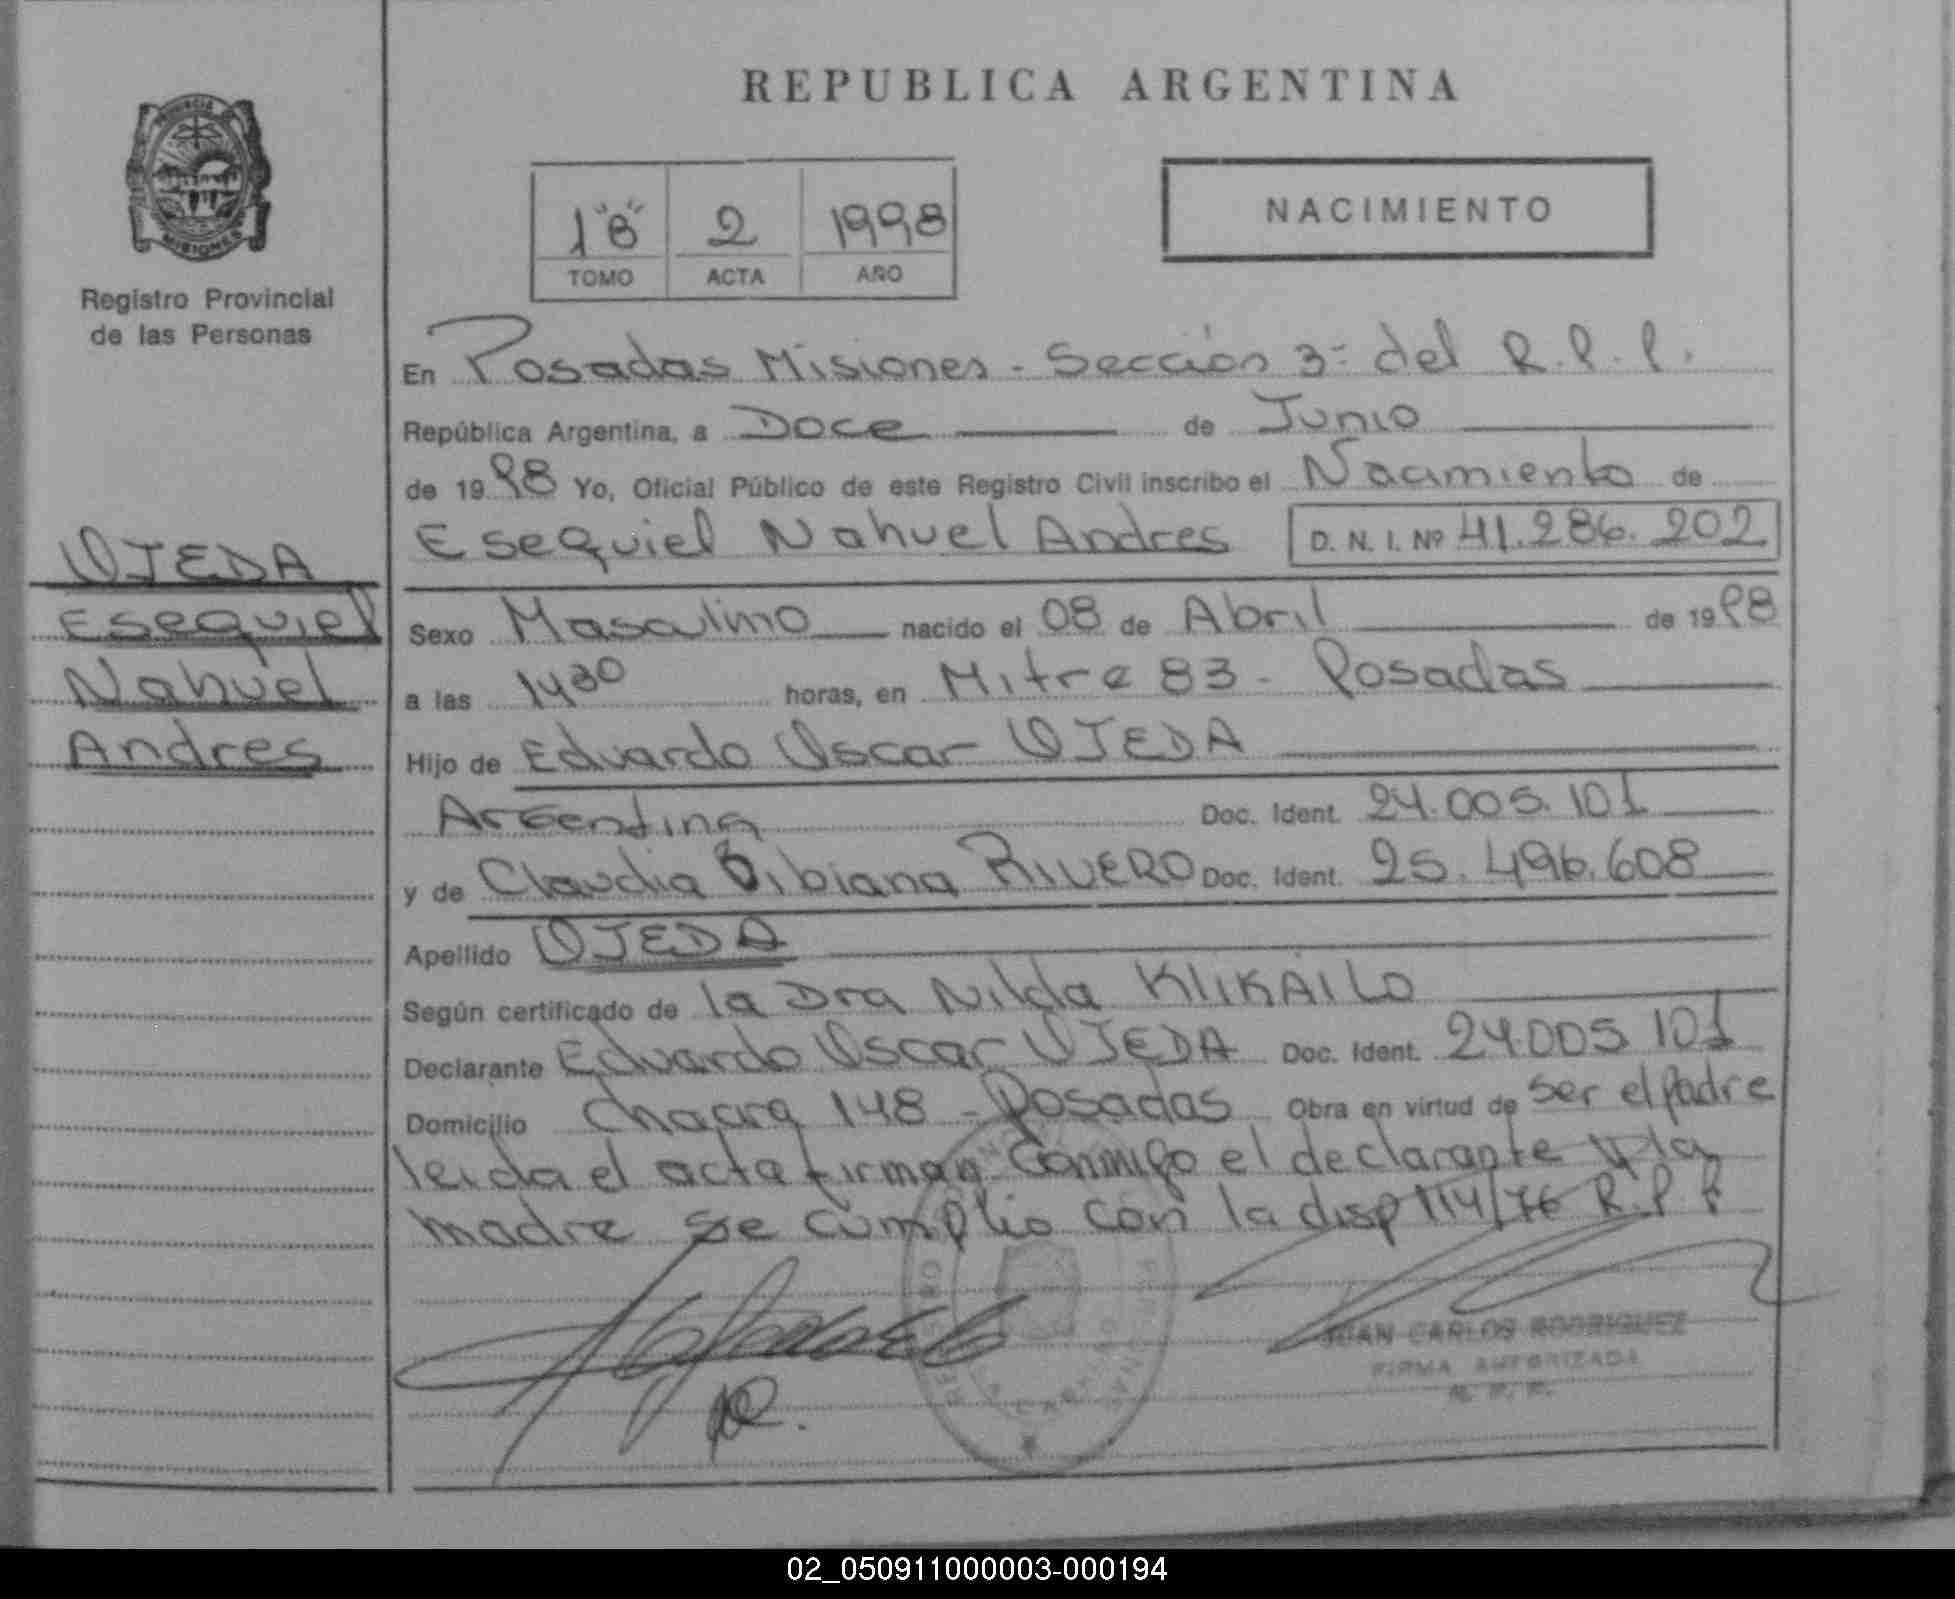 PROVINCIA
MISIONES
Registro Provincial
de las Personas
OJEDA
Esequiel
Nahuel
Andres
REPUBLICA ARGENTINA
1"B" 2 1998
TOMO ACTA AÑO
NACIMIENTO
En Posadas Misiones - Sección 3ª del R.P.P.
República Argentina, a Doce de Junio
de 1998 Yo, Oficial Público de este Registro Civil inscribo el Nacimiento de
Esequiel Nahuel Andres D. N. I. Nº 41.286.202
Sexo Masculino nacido el 08 de Abril de 1998
a las 1430 horas, en Mitre 83 - Posadas
Hijo de Eduardo Oscar OJEDA
Argentina Doc. Ident. 24.005.101
y de Claudia Bibiana RIVERO Doc. Ident. 25.496.608
Apellido OJEDA
Según certificado de la Dra Nilda KLIKAILO
Declarante Eduardo Oscar OJEDA Doc. Ident. 24.005.101
Domicilio Chacra 148 - Posadas Obra en virtud de ser el padre
leida el acta firman conmigo el declarante y la
madre se cumplio con la disp 114/76 R.P.P
JUAN CARLOS RODRIGUEZ
FIRMA AUTORIZADA
R. P. P.
02_050911000003-000194